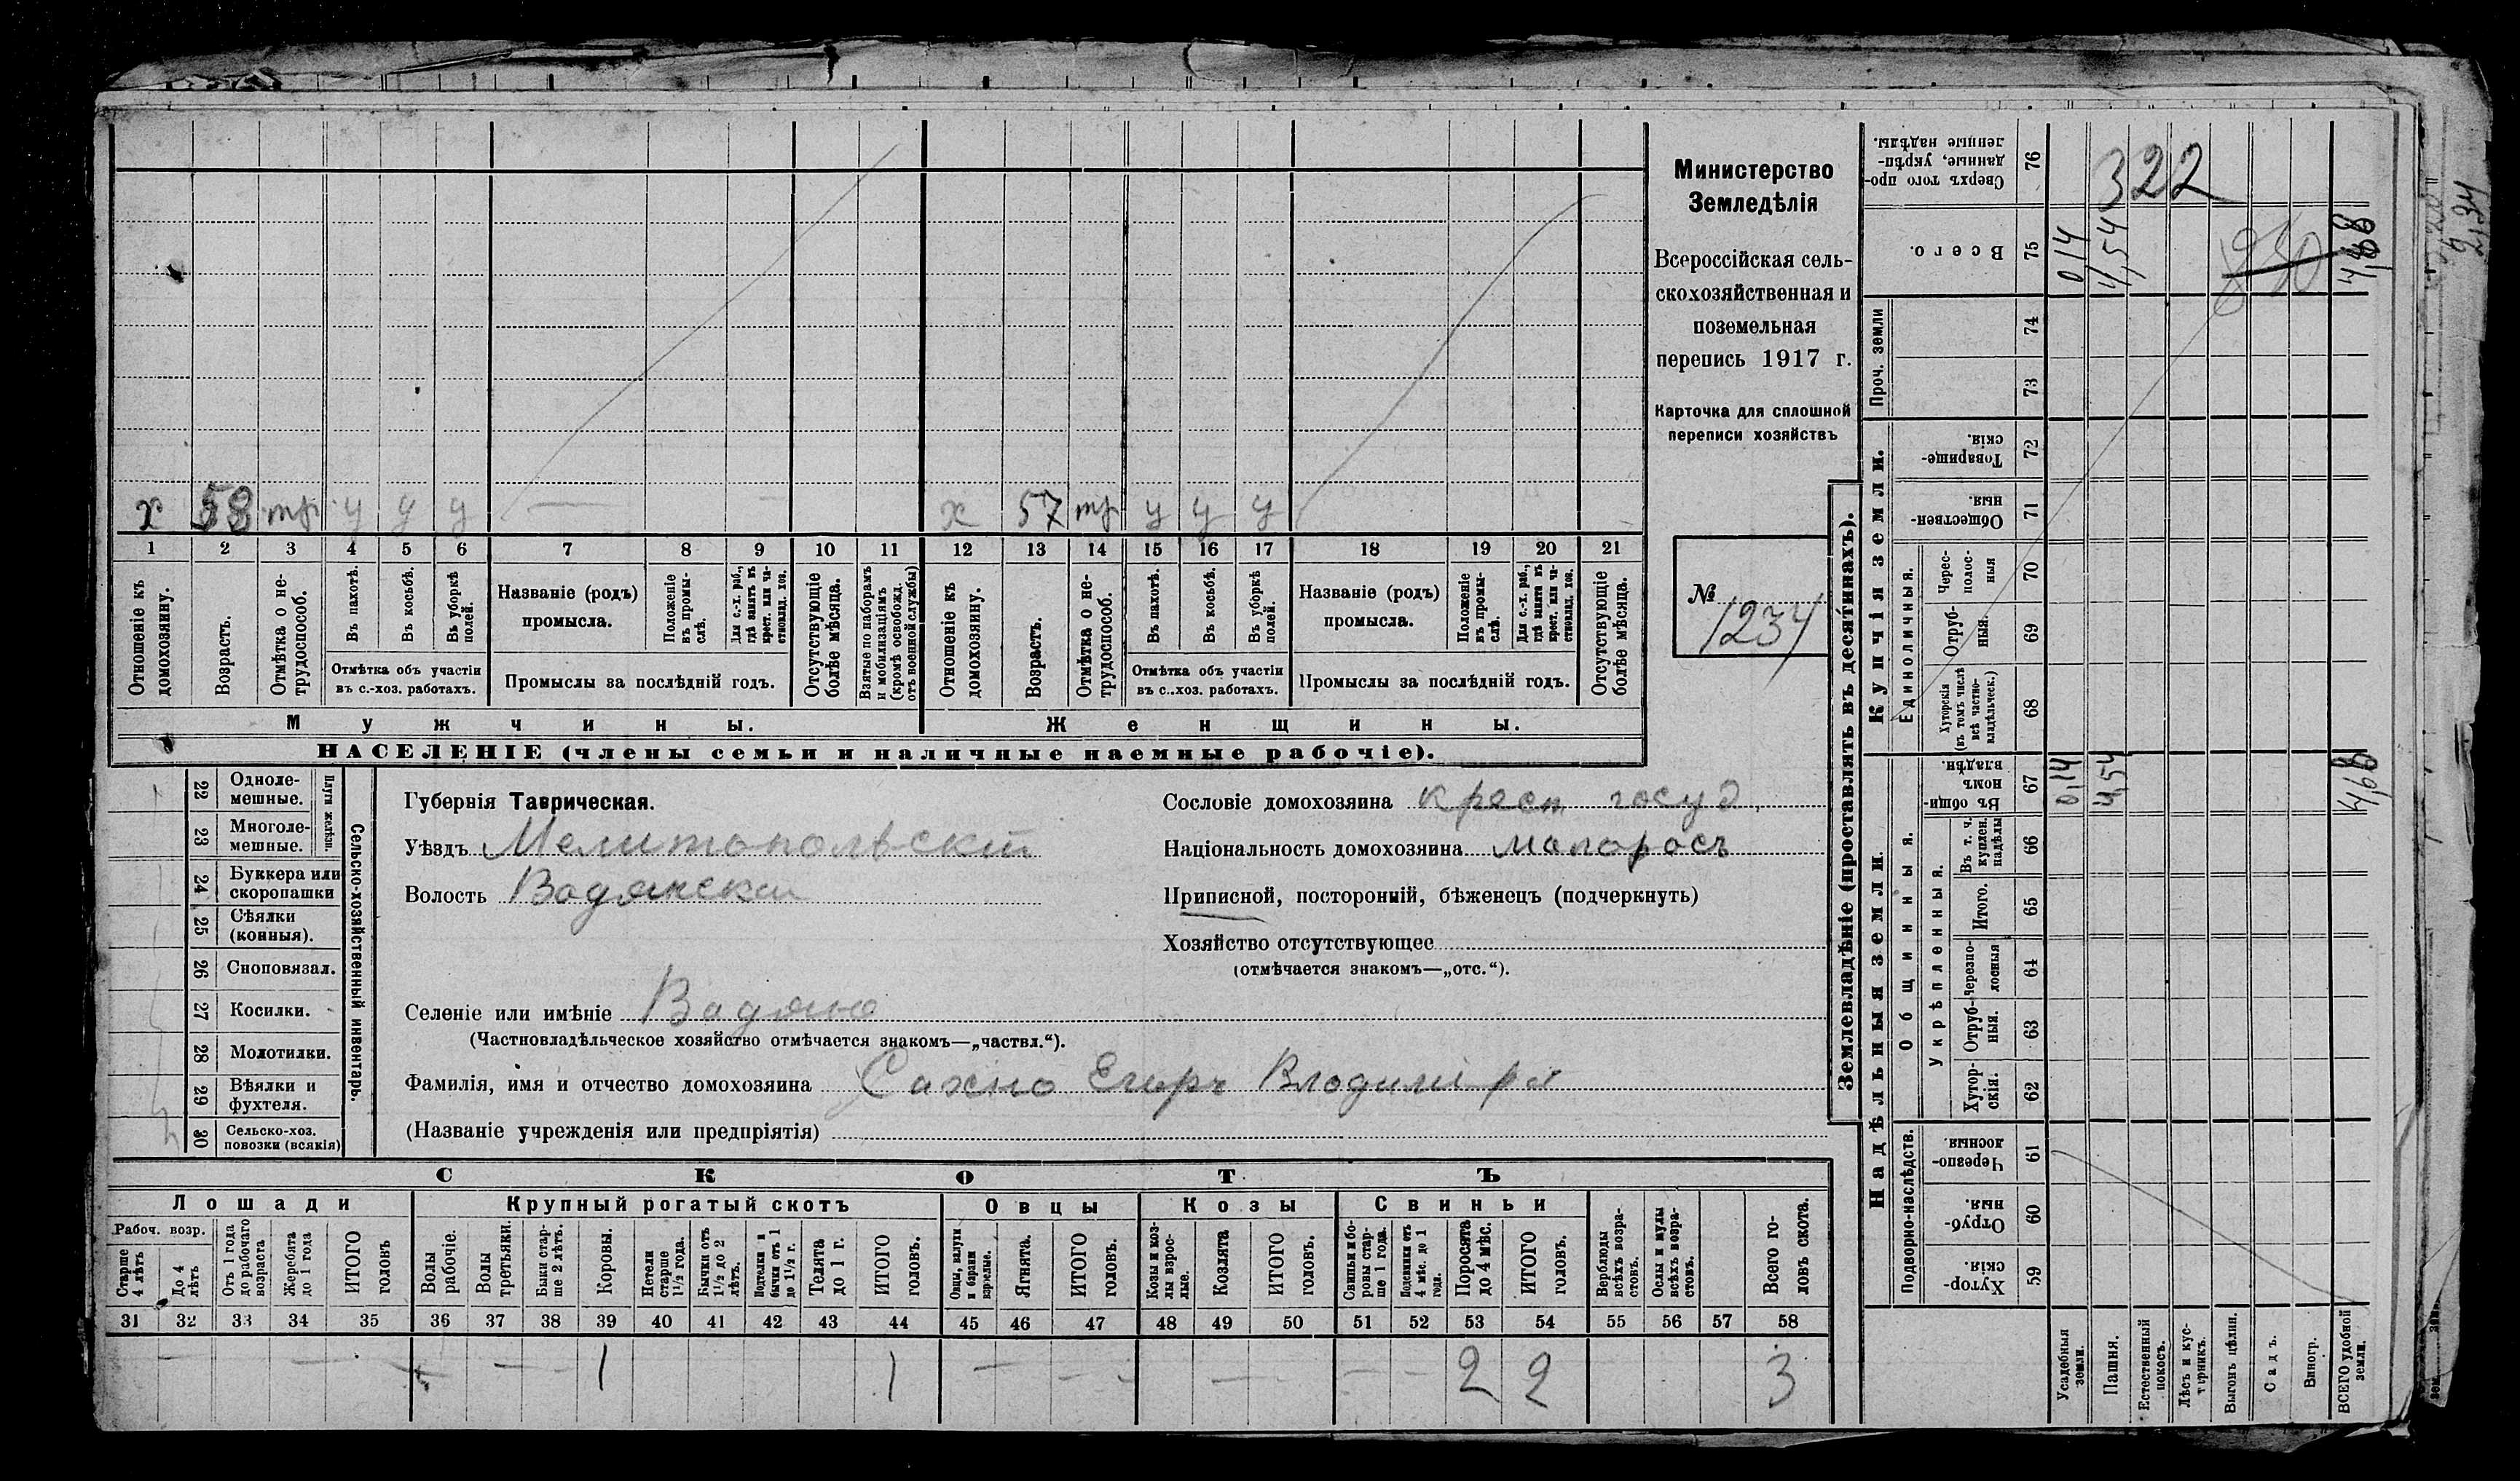 х 58 тр у у у — х 57 тр у у у
1 2 3 4 5 6 7 8 9 10 11 12 13 14 15 16 17 18 19 20 21
Отношеніе къ домохозяину.
Возрастъ.
Отмѣтка о не-трудоспособ.
Въ пахотѣ.
Въ косьбѣ.
Въ уборкѣ полей.
Отмѣтка объ участіи
въ с.-хоз. работахъ.
Названіе (родъ)
промысла.
Положеніе въ промы-слѣ.
Для с.-х. раб., гдѣ занятъ въ крест. или ча-стновлад. хоз.
Промыслы за послѣдній годъ.
Отсутствующіе болѣе мѣсяца.
Взятые по наборамъ и мобилизаціямъ (кромѣ освобожд. отъ военной службы)
Отношеніе къ домохозяину.
Возрастъ.
Отмѣтка о не-трудоспособ.
Въ пахотѣ.
Въ косьбѣ.
Въ уборкѣ полей.
Отмѣтка объ участіи
въ с.-хоз. работахъ.
Названіе (родъ)
промысла.
Положеніе въ промы-слѣ.
Для с.-х. раб., гдѣ занята въ крест. или ча-стновлад. хоз.
Промыслы за послѣдній годъ.
Отсутствующіе болѣе мѣсяца.
Мужчины. Женщины.
НАСЕЛЕНІЕ (члены семьи и наличные наемные рабочіе).
Министерство
Земледѣлія
Всероссійская сель-
скохозяйственная и
поземельная
перепись 1917 г.
Карточка для сплошной
переписи хозяйствъ
№ 1234
22 Одноле-мешные.
23 Многоле-мешные.
Плуги желѣзн.
24 Буккера или скоропашки
25 Сѣялки (конныя).
26 Сноповязал.
27 Косилки.
28 Молотилки.
29 Вѣялки и фухтеля.
30 Сельско-хоз. повозки (всякія)
Сельско-хозяйственный инвентарь.
Губернія Таврическая.
Уѣздъ Мелитопольскій
Волость Водянская
Селеніе или имѣніе Водяно
(Частновладѣльческое хозяйство отмѣчается знакомъ—„частвл.“).
Фамилія, имя и отчество домохозяина Сахно Егоръ Владимиро
(Названіе учрежденія или предпріятія)
Сословіе домохозяина крест госуд,
Національность домохозяина малоросъ
Приписной, посторонній, бѣженецъ (подчеркнуть)
Хозяйство отсутствующее
(отмѣчается знакомъ—„отс.“).
СКОТЪ
Лошади Крупный рогатый скотъ Овцы Козы Свиньи
Рабоч. возр.
Старше 4 лѣтъ
До 4 лѣтъ
Отъ 1 года до рабочаго возраста
Жеребята до 1 года
ИТОГО головъ
Волы рабочіе.
Волы третьяки.
Быки стар-ше 2 лѣтъ.
Коровы.
Нетели старше 1½ года.
Бычки отъ 1½ до 2 лѣтъ.
Подтелки и бычки отъ 1 до 1½ г.
Телята до 1 г.
ИТОГО головъ.
Овцы, валухи и бараны взрослые.
Ягнята.
ИТОГО головъ.
Козы и коз-лы взрос-лые.
Козлята
ИТОГО головъ.
Свиньи и бо-ровы стар-ше 1 года.
Подсвинки отъ 4 мѣс. до 1 года.
Поросята до 4 мѣс.
ИТОГО головъ.
Верблюды всѣхъ возра-стовъ.
Ослы и мулы всѣхъ возра-стовъ.
Всего го-ловъ скота.
31 32 33 34 35 36 37 38 39 40 41 42 43 44 45 46 47 48 49 50 51 52 53 54 55 56 57 58
1 1 2 2 3
Землевладѣніе (проставлять въ десятинахъ).
Сверхъ того про-данные, укрѣп-ленные надѣлы. 76
322
Всего. 75 0,14 4,54 4,68
Проч. земли
74
73
Купчія земли.
Товарище-скія. 72
Обществен-ныя. 71
Единоличныя.
Черес-полос-ныя 70
Отруб-ныя. 69
Хуторскія (въ томъ числѣ всѣ частно-владѣльческ.) 68
Надѣльныя земли.
Общинныя.
Въ общин-номъ владѣн. 67 0,14 4,54 4,68
Укрѣпленныя.
Въ т. ч. куплен. надѣлы 66
Итого. 65
Черезпо-лосныя 64
Отруб-ныя. 63
Хутор-скія. 62
Подворно-наслѣдств.
Черезпо-лосныя 61
Отруб-ныя. 60
Хутор-скія. 59
Усадебныя земли.
Пашня.
Естественный покосъ.
Лѣсъ и кус-тарникъ.
Выгонъ цѣлин.
Садъ.
Виногр.
ВСЕГО удобной земли.
2,34